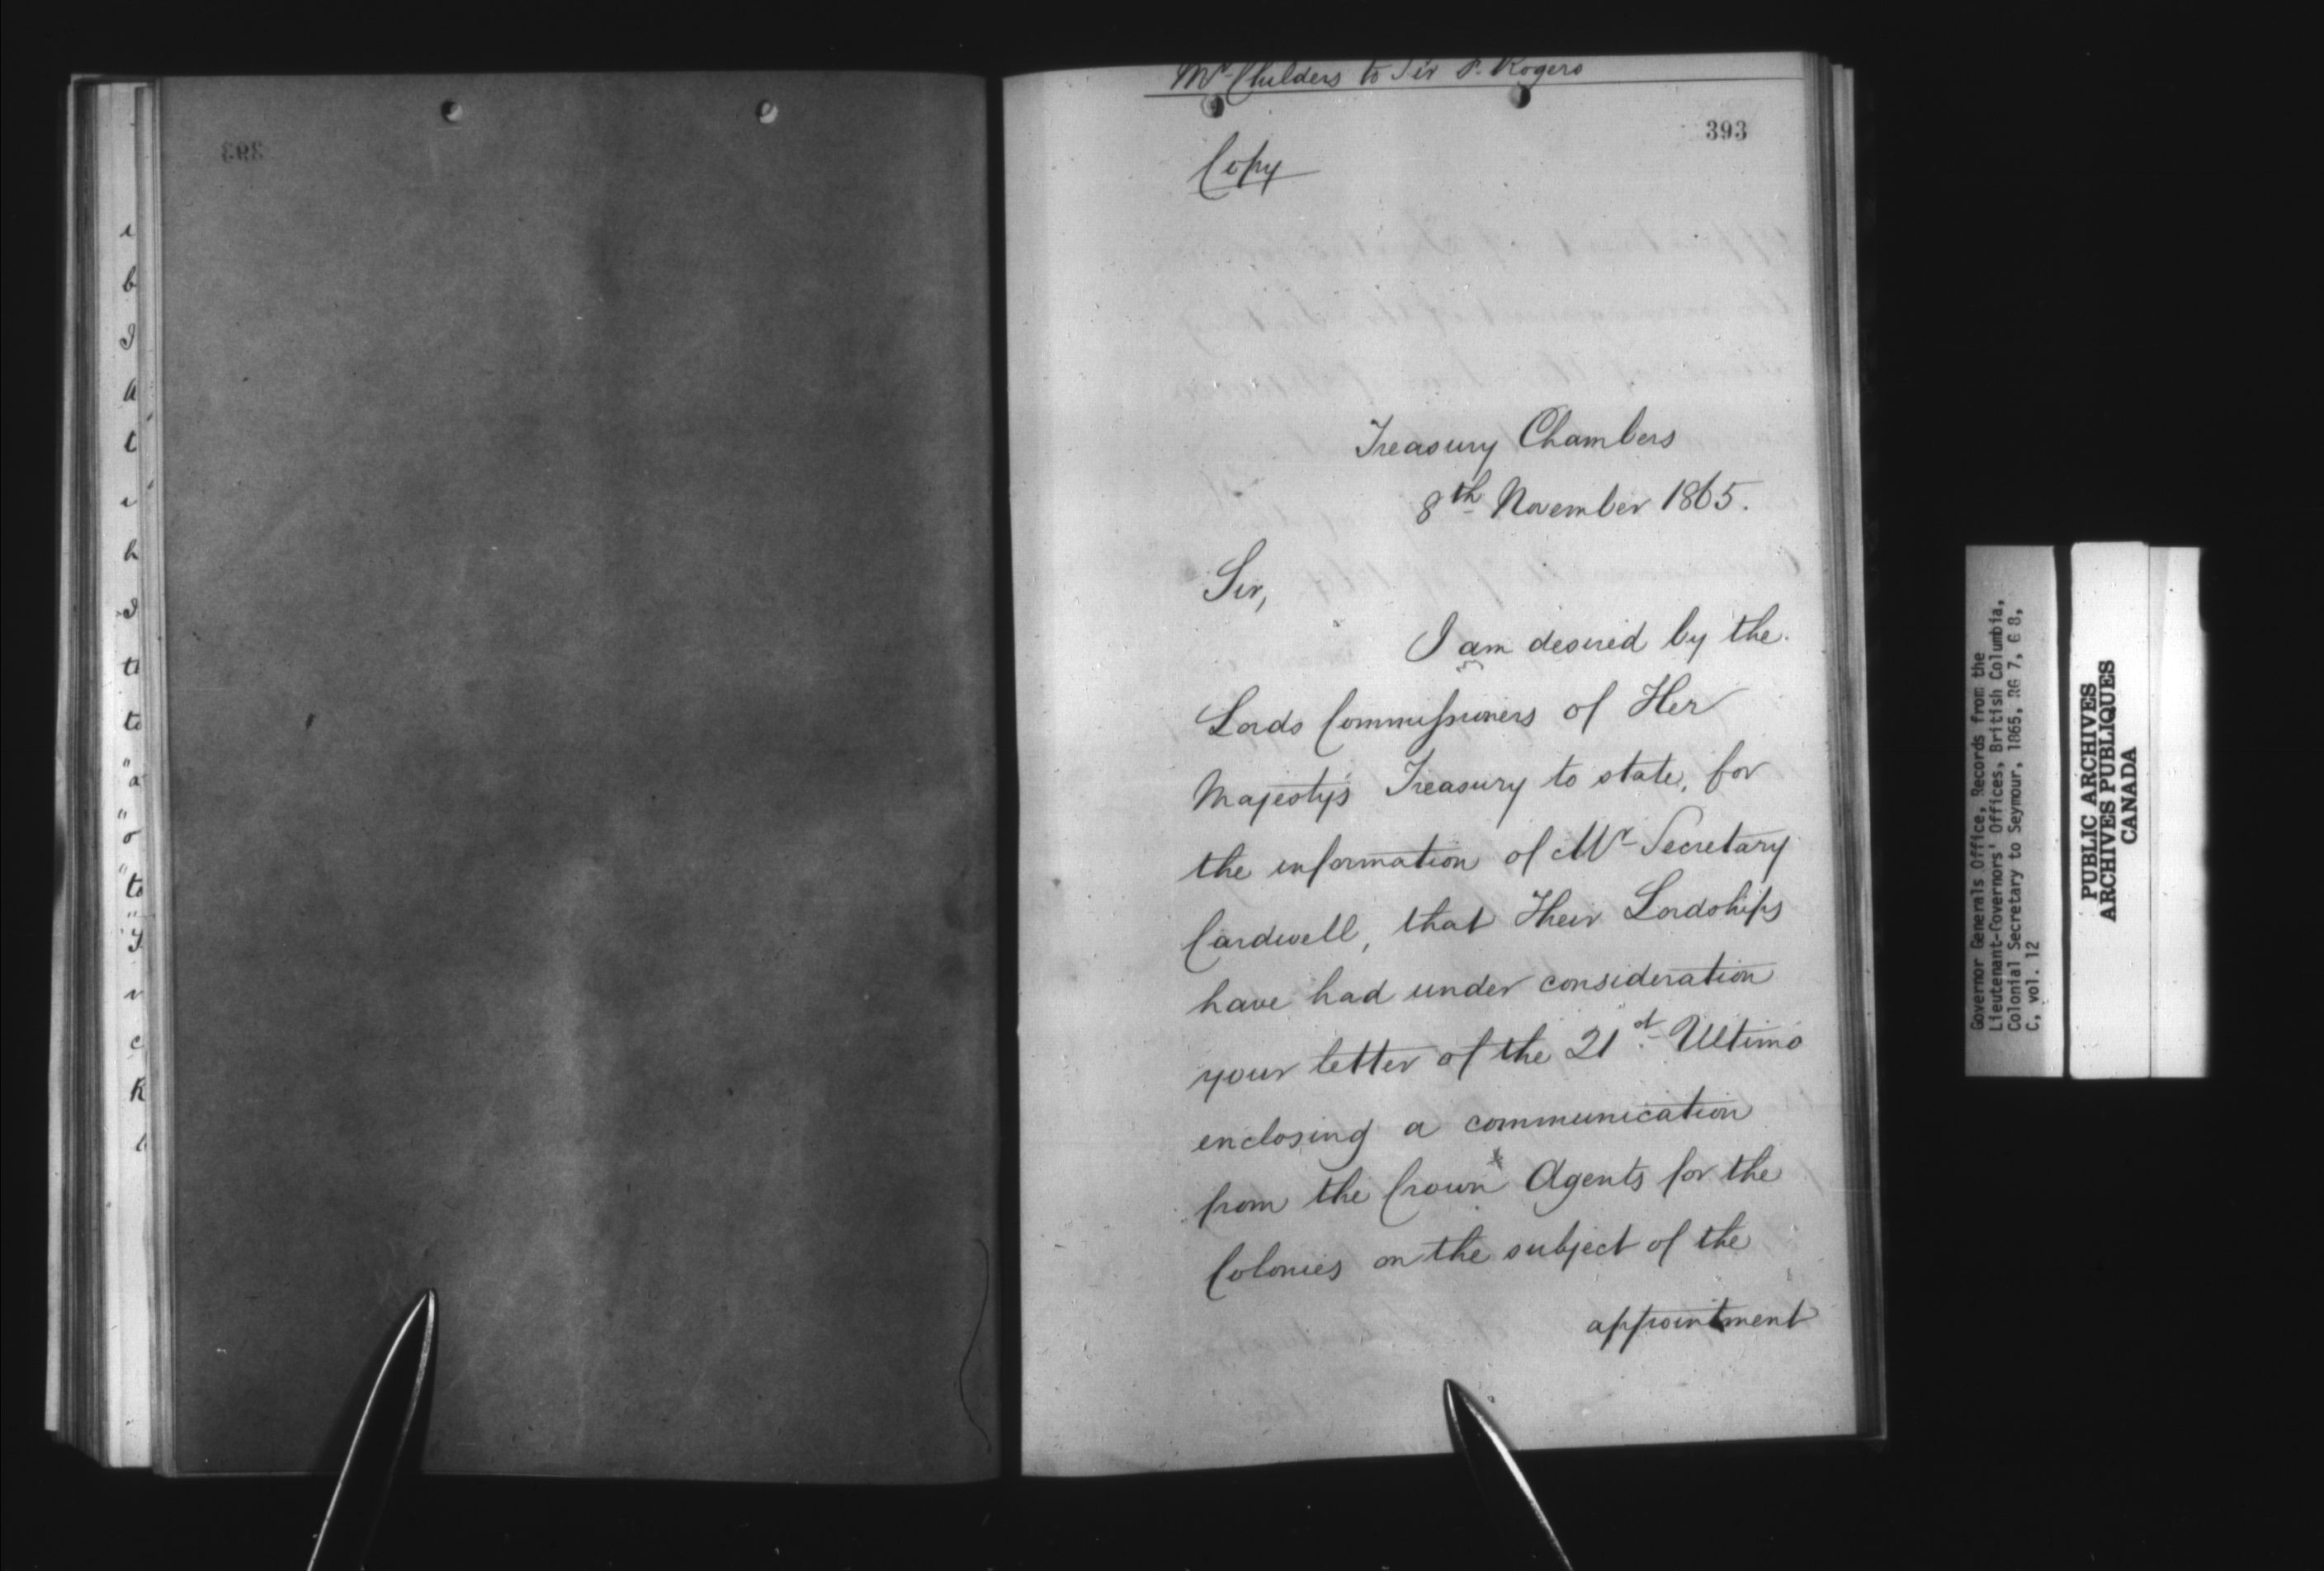 Mr Childers to Sir F. Rogers
393
Copy
Treasury Chambers
8th November 1865.
Sir,
I am desired by the
Lords Commissioners of Her
Majesty's Treasury to state, for
the information of Mr Secretary
Cardwell, that Their Lordships
have had under consideration
your letter of the 21st Ultimo
enclosing a communication
from the Crown Agents for the
Colonies on the subject of the
appointment
Governor Generals Office, Records from the
Lieutenant-Governors' Offices, British Columbia,
Colonial Secretary to Seymour, 1865, RG 7, G 8,
C, vol. 12
PUBLIC ARCHIVES
ARCHIVES PUBLIQUES
CANADA